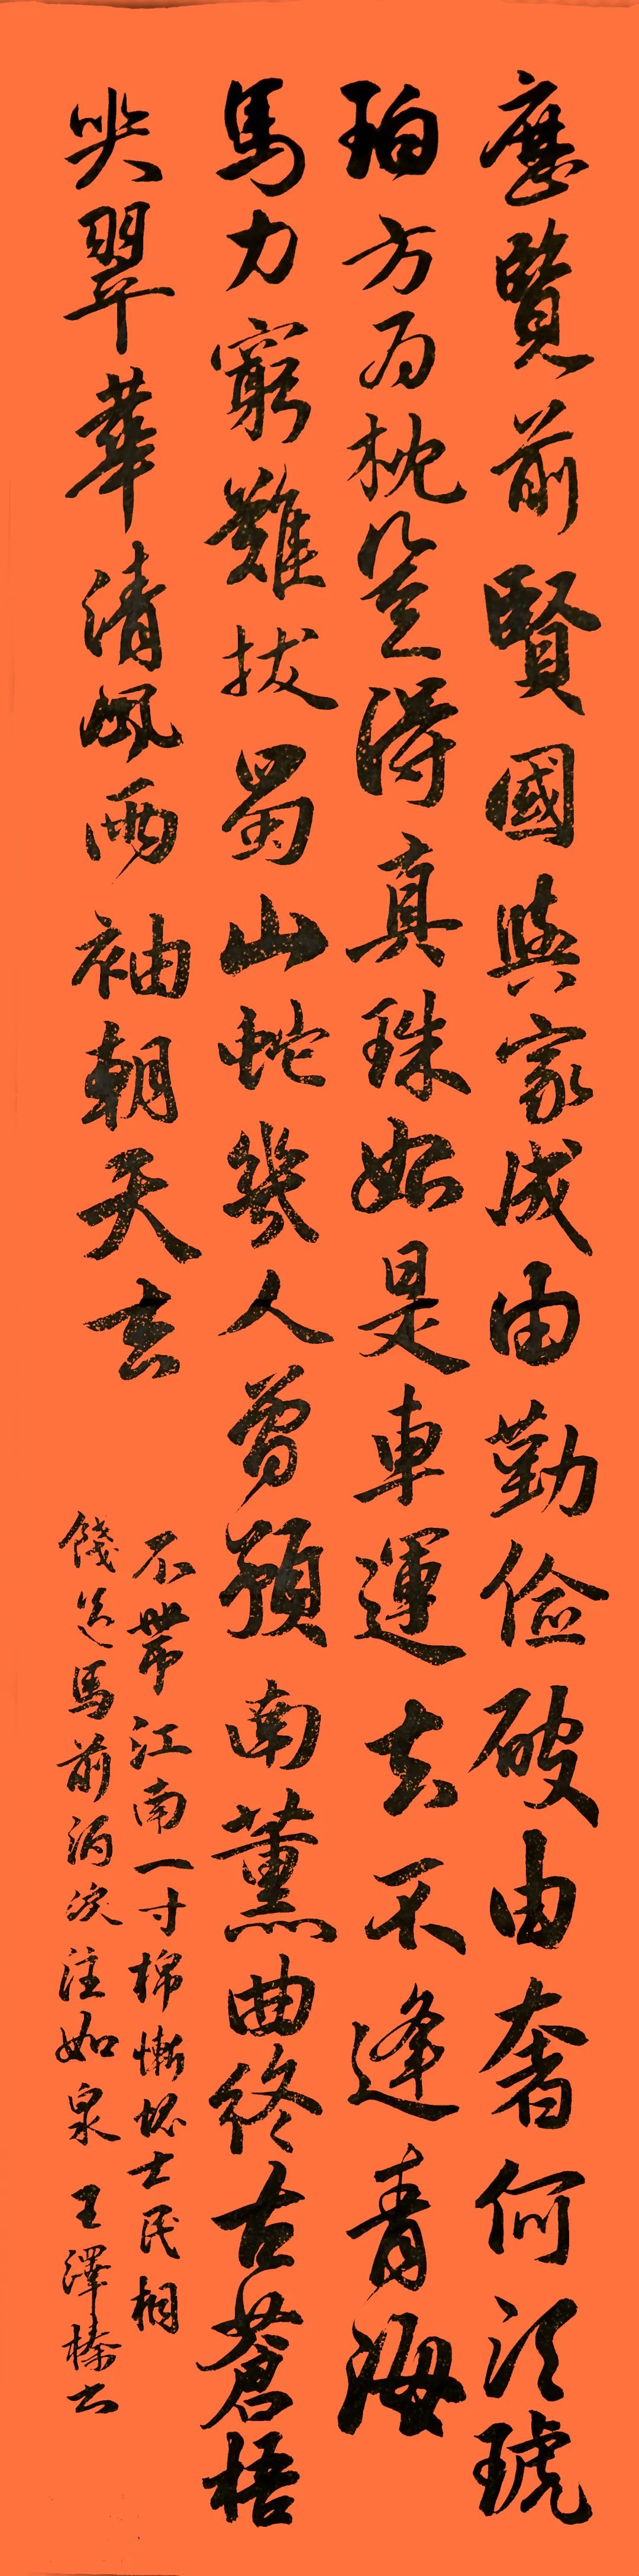 歷覽前賢國與家成由勤儉破由奢何須琥
珀方為枕豈得真珠始是車運去不逢青海
馬力窮難拔蜀山蛇幾人曾預南薰曲終古蒼梧
哭翠華清風兩袖朝天去
不帶江南一寸棉慚愧士民相
餞送馬前洒淚注如泉 王澤榛書